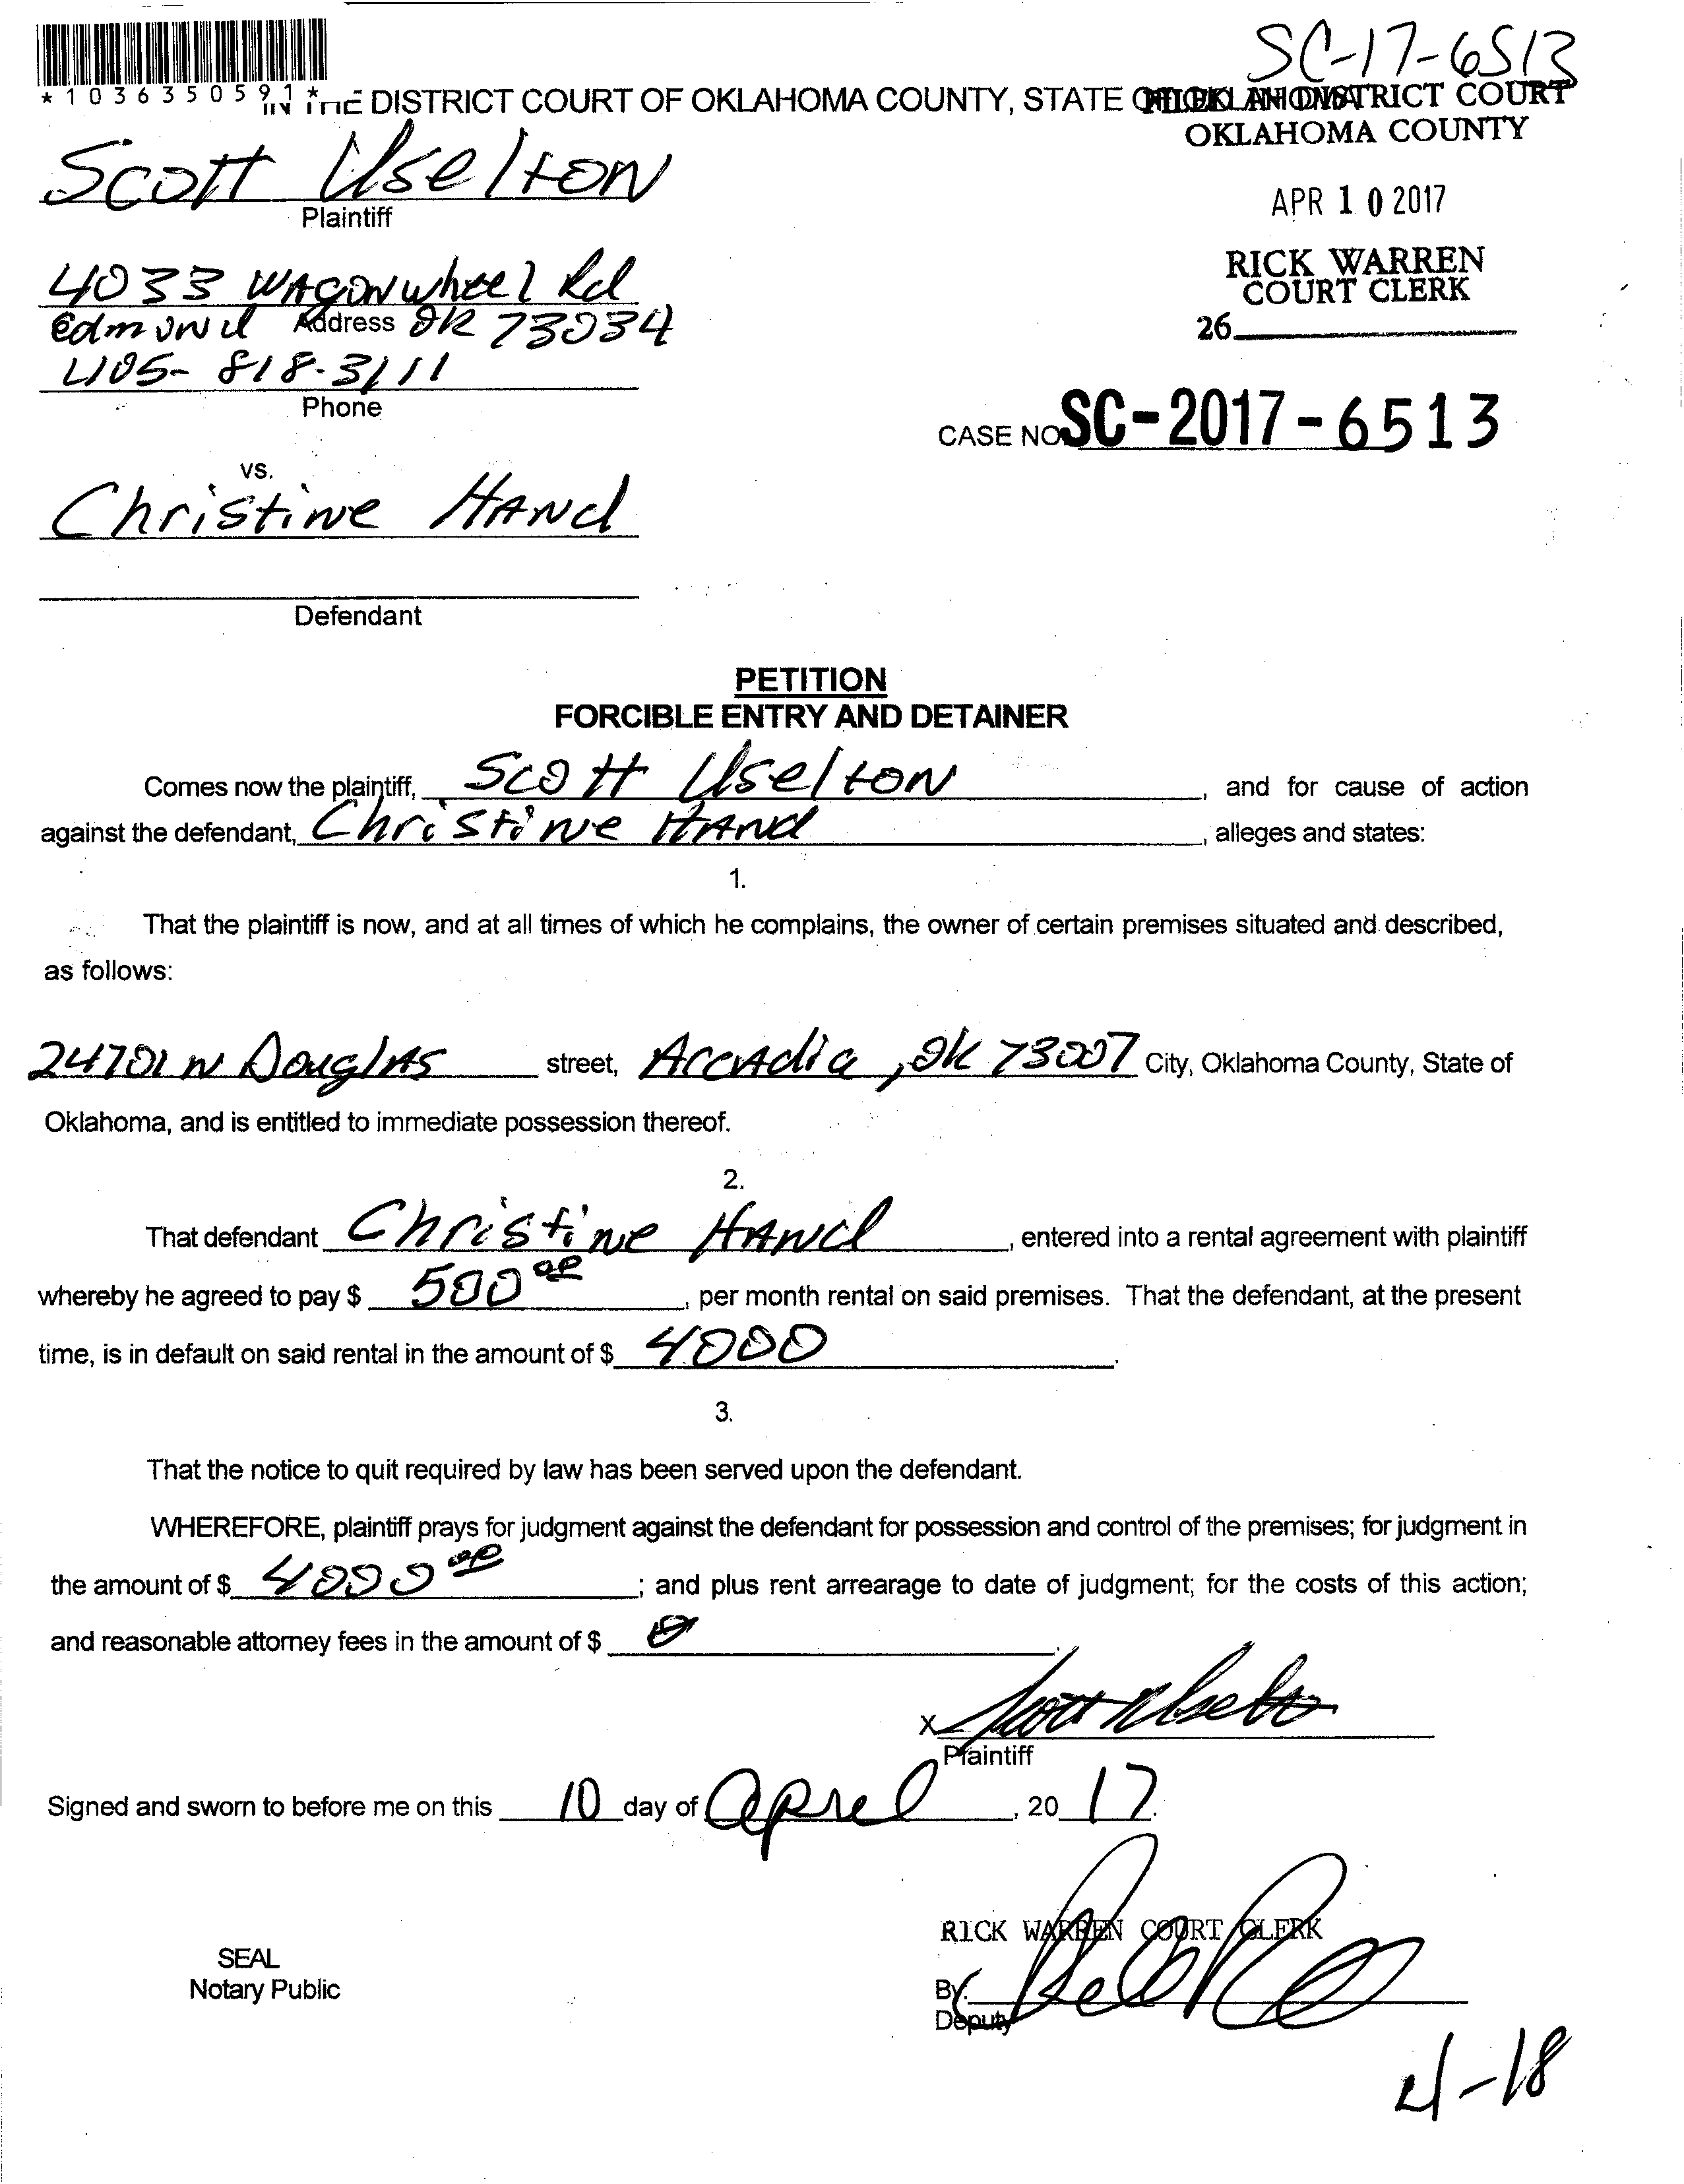 SC-17-6513
*1036350591*
IN THE DISTRICT COURT OF OKLAHOMA COUNTY, STATE OF OKLAHOMA
FILED IN DISTRICT COURT
OKLAHOMA COUNTY
Scott Uselton
Plaintiff
APR 10 2017
4033 Wagonwheel Rd
RICK WARREN
COURT CLERK
Edmond OK 73034
Address
26
405-818-3111
Phone
CASE NO. SC-2017-6513
vs.
Christine Hand
Defendant
PETITION
FORCIBLE ENTRY AND DETAINER
Comes now the plaintiff, Scott Uselton, and for cause of action
against the defendant, Christine Hand, alleges and states:
1.
That the plaintiff is now, and at all times of which he complains, the owner of certain premises situated and described,
as follows:
24701 N Douglas street, Arcadia, OK 73007 City, Oklahoma County, State of
Oklahoma, and is entitled to immediate possession thereof.
2.
That defendant Christine Hand, entered into a rental agreement with plaintiff
whereby he agreed to pay $ 500 00, per month rental on said premises. That the defendant, at the present
time, is in default on said rental in the amount of $ 4000.
3.
That the notice to quit required by law has been served upon the defendant.
WHEREFORE, plaintiff prays for judgment against the defendant for possession and control of the premises; for judgment in
the amount of $ 4000 00; and plus rent arrearage to date of judgment; for the costs of this action;
and reasonable attorney fees in the amount of $ 0.
X Scott Uselton
Plaintiff
Signed and sworn to before me on this 10 day of April, 2017.
RICK WARREN COURT CLERK
SEAL
Notary Public
By:
Deputy
4-18